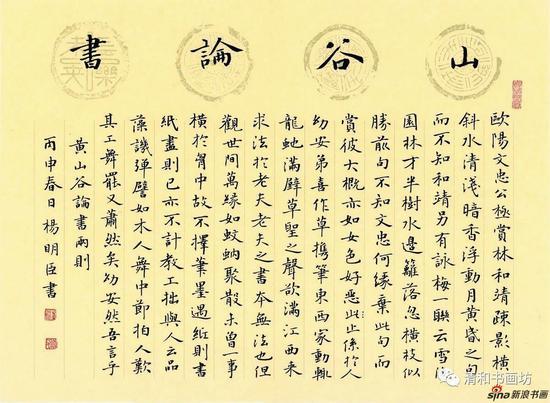 山谷論書
歐陽文忠公極賞林和靖疎影橫
斜水清淺暗香浮動月黃昏之句
而不知和靖另有詠梅一聯云雪後
園林才半樹水邊籬落忽橫枝似
勝前句不知文忠何緣棄此句而
賞彼大概亦如女色好惡此止係於人
幼安弟喜作草攜筆東西家動輒
龍蛇滿壁草聖之聲欲滿江西來
求法於老夫老夫之書本無法也但
觀世間萬緣如蚊蚋聚散未曾一事
橫於胷中故不擇筆墨遇紙則書
紙盡則已亦不計教工拙與人云品
藻譏彈譬如木人舞中節拍人歎
其工舞罷又蕭然矣幼安然吾言乎
黃山谷論書兩則
丙申春日楊明臣書
清和书画坊
sina新浪书画